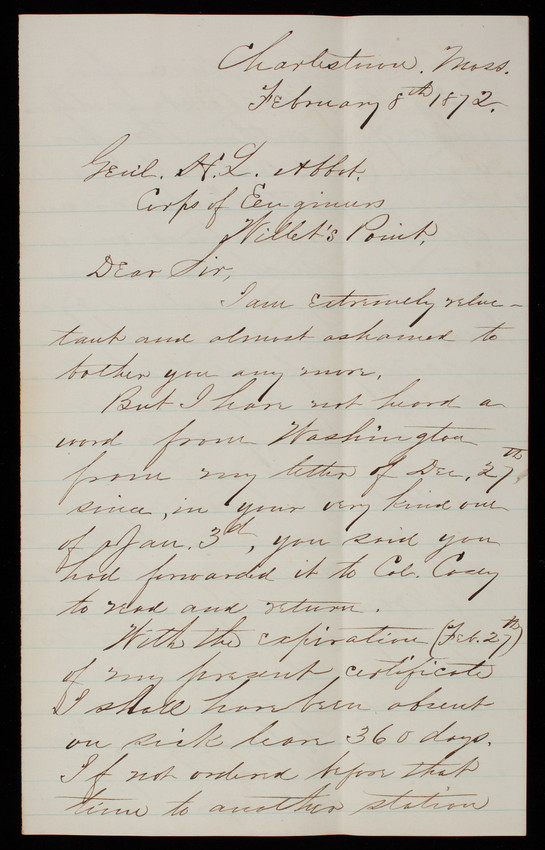 Charlestown. Mass.
February 8th 1872.
Genl. H. L. Abbot.
Corps of Engineers
Willet's Point,
Dear Sir,
I am extremely reluc-
tant and almost ashamed to
bother you any more.
But I have not heard a
word from Washington
from my letter of Dec. 27th
since, in your very kind one
of Jan. 3d, you said you
had forwarded it to Col. Casey
to read and return.
With the expiration (Feb. 27th)
of my present certificate
I shall have been absent
on sick leave 360 days.
If not ordered before that
time to another station